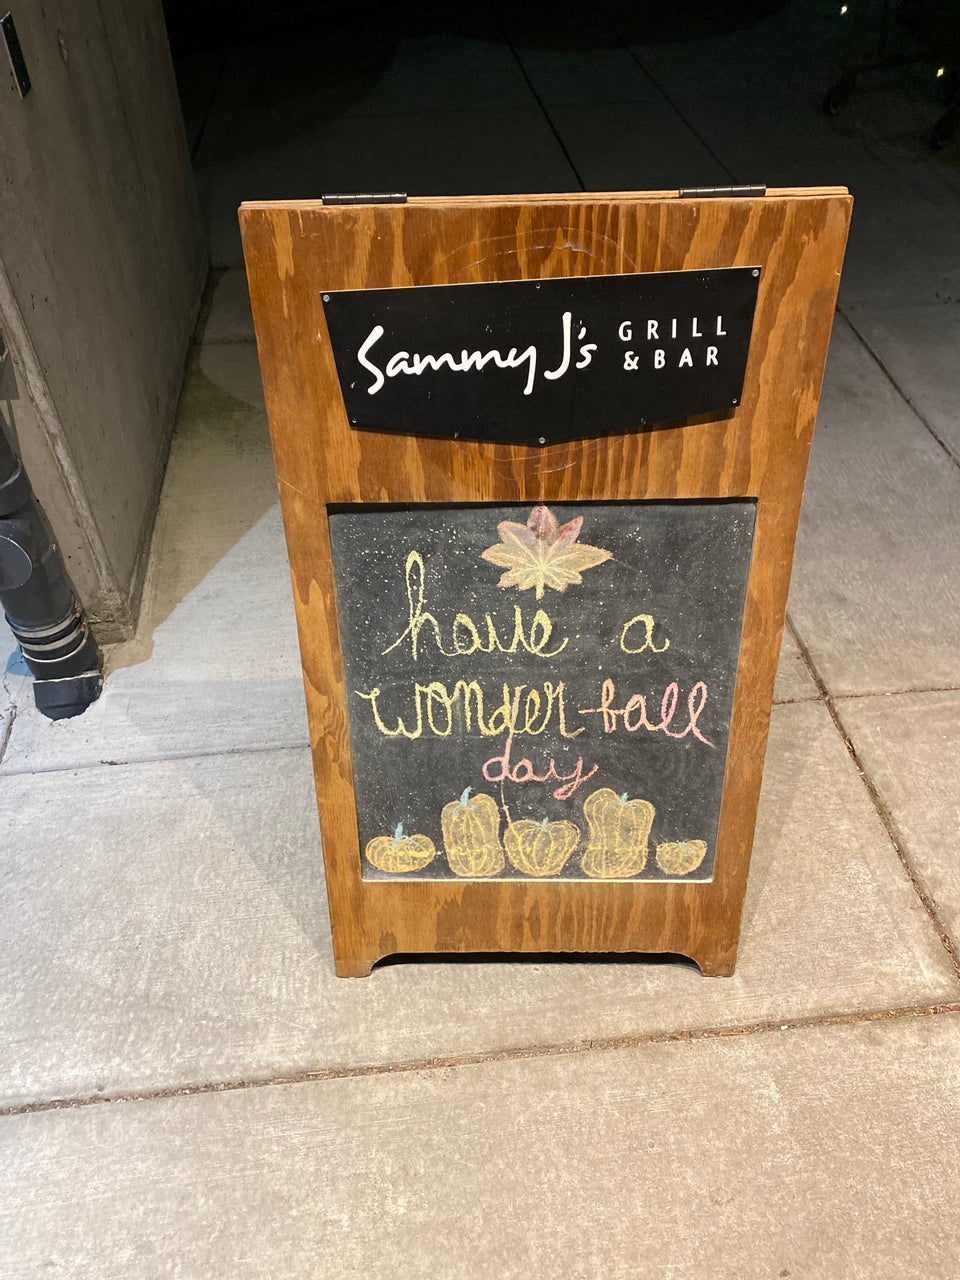 Sammy J's GRILL
& BAR
have a
wonder-fall
day